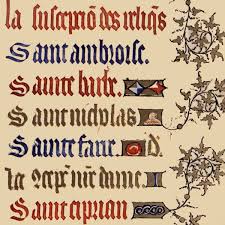 la suscepciõ des reliq̃s
Saint ambroise.
Sainte barbe.
Saint nicholas
Sainte fare d.
la ꝯcepⁿ nr̃e dame.
Saint ciprian